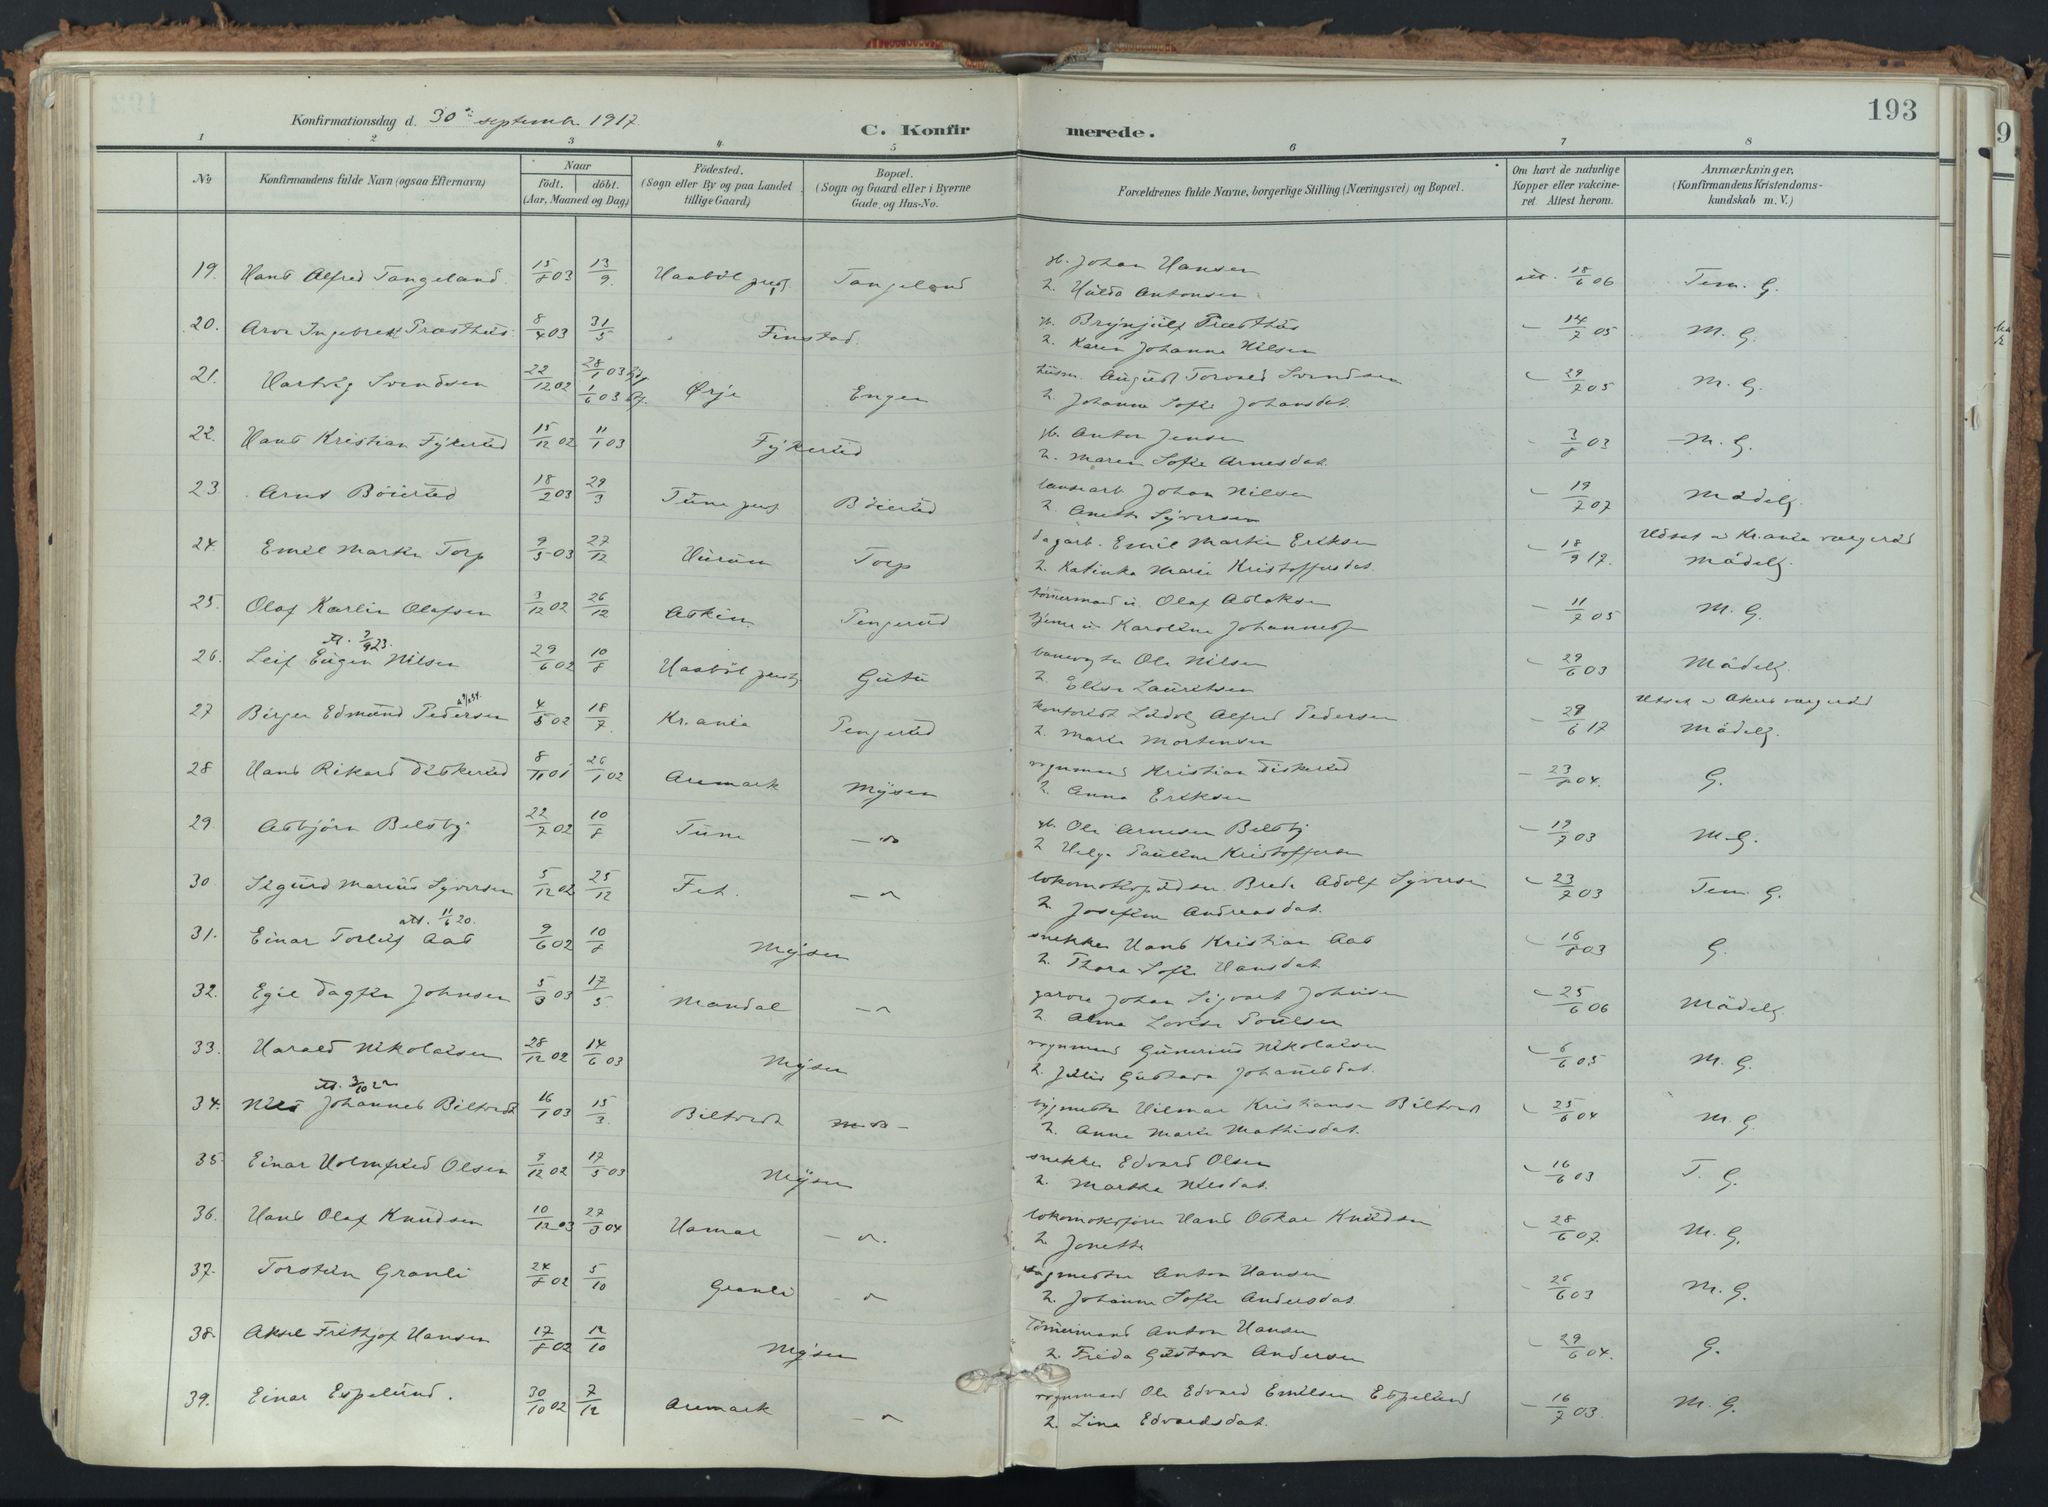 193
Konfirmationsdag d. 30 september 1917.
C. Konfirmerede.
1 2 3 4. 5 6 7 8
No Konfirmandens fulde Navn (ogsaa Efternavn) Naar født. døbt. (Aar, Maaned og Dag) Fødested. (Sogn eller By og paa Landet tillige Gaard) Bopæl. (Sogn og Gaard eller i Byerne Gade og Hus-No. Forældrenes fulde Navne, borgerlige Stilling (Næringsvei) og Bopæl. Om havt de naturlige Kopper eller vakcineret. Attest herom. Anmærkninger, (Konfirmandens Kristendomskundskab m. V.)
19. Hans Alfred Tangeland. 15/8 03 13/9. Haabøl Tangeland Johan Hansen att. 18/6 06 Tem. G.
Hulda Antonsen.
20. Arve Ingebrekt Præsthus. 8/4 03 31/5 Finstad. Brynjulf Præsthus 14/7 05 M. G.
Karen Johanne Nilsen
21. Hartvig Svendsen 22/12 02 28/1 03 1/6 03 Ørje Enger husm. August Torvald Svendsen 29/7 05 M. G.
Johanne Sofie Johansdat.
22. Hans Kristian Fykerud 15/12 02 11/1 03 Fykerud Anton Jensen 3/8 03 M. G.
Maren Sofie Arnesdat.
23. Arne Böierud 18/2 03 29/3 Tune Böierud Johan Nilsen 19/7 07 Mådelg.
Anette Syversen
24. Emil Martin Torp 9/5 03 27/12 Hurum Torp dagarb. Emil Martin Eriksen 18/9 17. Mådelg.
Katinka Marie Kristoffersdat.
25. Olaf Karlin Olafsen 3/12 02 26/12 Askim. Tengerud tömermand Olaf Aslaksen 11/7 05 M. G.
Karoline
26. Leif Eugen Nilsen 29/6 02 10/8 Haabøl Gutu banevogter Ole Nilsen 29/6 03 Mådelg
Elise Lauritsen
27 Birger Edmund Pedersen 4/5 02 18/7. Kr.ania Tengerud kontorist Ludolf Alfred Pedersen 29/6 17 Mådelg.
Marie Mortensen
28 Hans Rikard Diskerud 8/11 01 26/1 02 Aremark Mysen vognmand Kristian Diskerud 23/8 04. G.
Anna Eriksen
29. Asbjørn Belsby 22/7 02 10/8 Tune Ole Arnesen Belsby 19/7 03 M. G.
Helga Pauline Kristoffersen
30 Sigurd Marius Syversen 5/12 02 25/12 Fet. Brede Adolf Syversen 23/7 03 Tem. G.
Josefine Andreasdat.
att. 11/6 20.
31. Einar Torleif Aas 9/6 02 10/8 Mysen snekker Hans Kristian Aas 16/8 03 G.
Thora Sofie Hansdat.
32. Egil Dagfin Johnsen 5/3 03 17/5. Mandal garver Johan Sigvart Johnsen 25/6 06 Mådelg
Alma Lovise Poulsen
33. Harald Nikolaisen 28/12 02 14/6 03 Mysen vognmand Gunerius Nikolaisen 6/6 05 M. G.
Gustava Johannesdat.
34. Nils Johannes Biltvedt 16/1 03 15/3. Biltvedt Hilmar Kristiansen Biltvedt 25/6 04 M. G.
Anne Marie Mathisdat.
35. Einar Holmfred Olsen 9/12 02 17/5 03 Mysen snekker Edvard Olsen 16/6 03 T. G.
Marthe Nilsdat.
36. Hans Olaf Knudsen 10/12 03 27/3 04 Hamar lokomotivfører Hans Oskar Knudsen 28/6 07. M. G.
Jonette
37. Torstein Granli 24/8 02 5/10 Granli Anton Hansen 26/6 03 M. G.
Johanne Sofie Andersdat.
38. Aksel Frithjof Hansen 17/8 02 12/10 Mysen Tömermand Anton Hansen 29/6 04. G.
Frida Gustava Andersen
39. Einar Espelund. 30/10 02 7/12 Aremark vognmand Ole Edvard Emilsen Espelund 16/7 03. M. G.
Lina Edvardsdat.